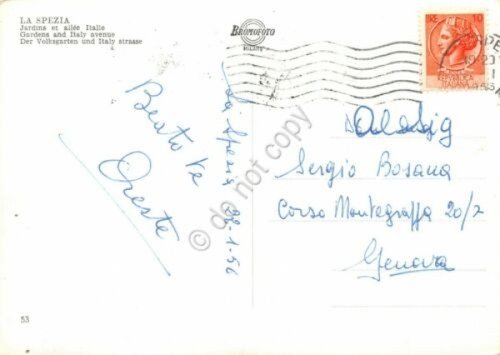 LA SPEZIA
Jardins et allée Italie
Gardens and Italy avenue
Der Volksgarten und Italy strasse
BROMOFOTO
MILANO
10
La Spezia 28-1-56
Beato te
Oreste
Al Sig
Sergio Bosana
Corso Montegrappa 20/2
Genova
do not copy
53